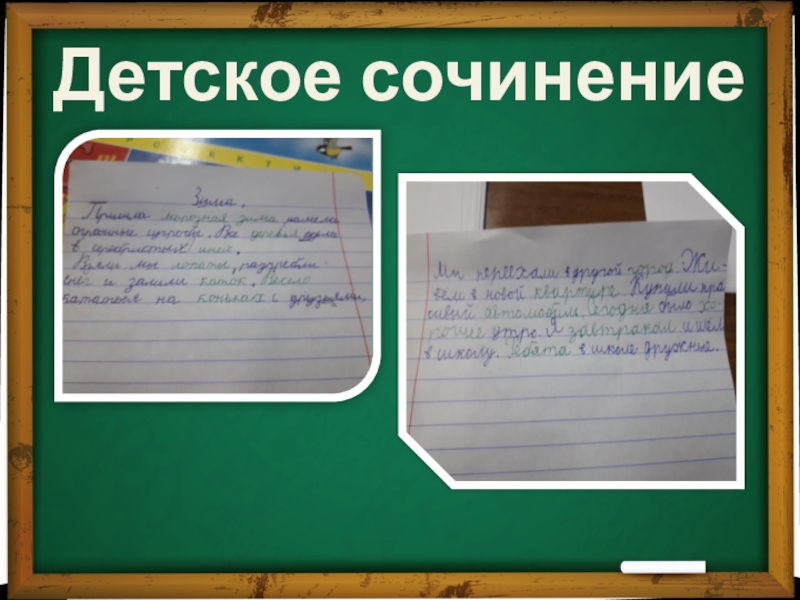 Детское сочинение
РОЕКТИ
Зима.
Пришла морозная зима намела
огромные сугробы. Все деревья одела
в серебристый иней.
Взяли мы лопаты, разгребли
снег и залили каток. Весело
кататься на коньках с друзьями.
Мы переехали в другой город. Жи-
вём в новой квартире. Купили кра
сивый автомобиль. Сегодня было хо-
рошее утро. Я завтракал и шёл
в школу. Ребята в школе дружные.